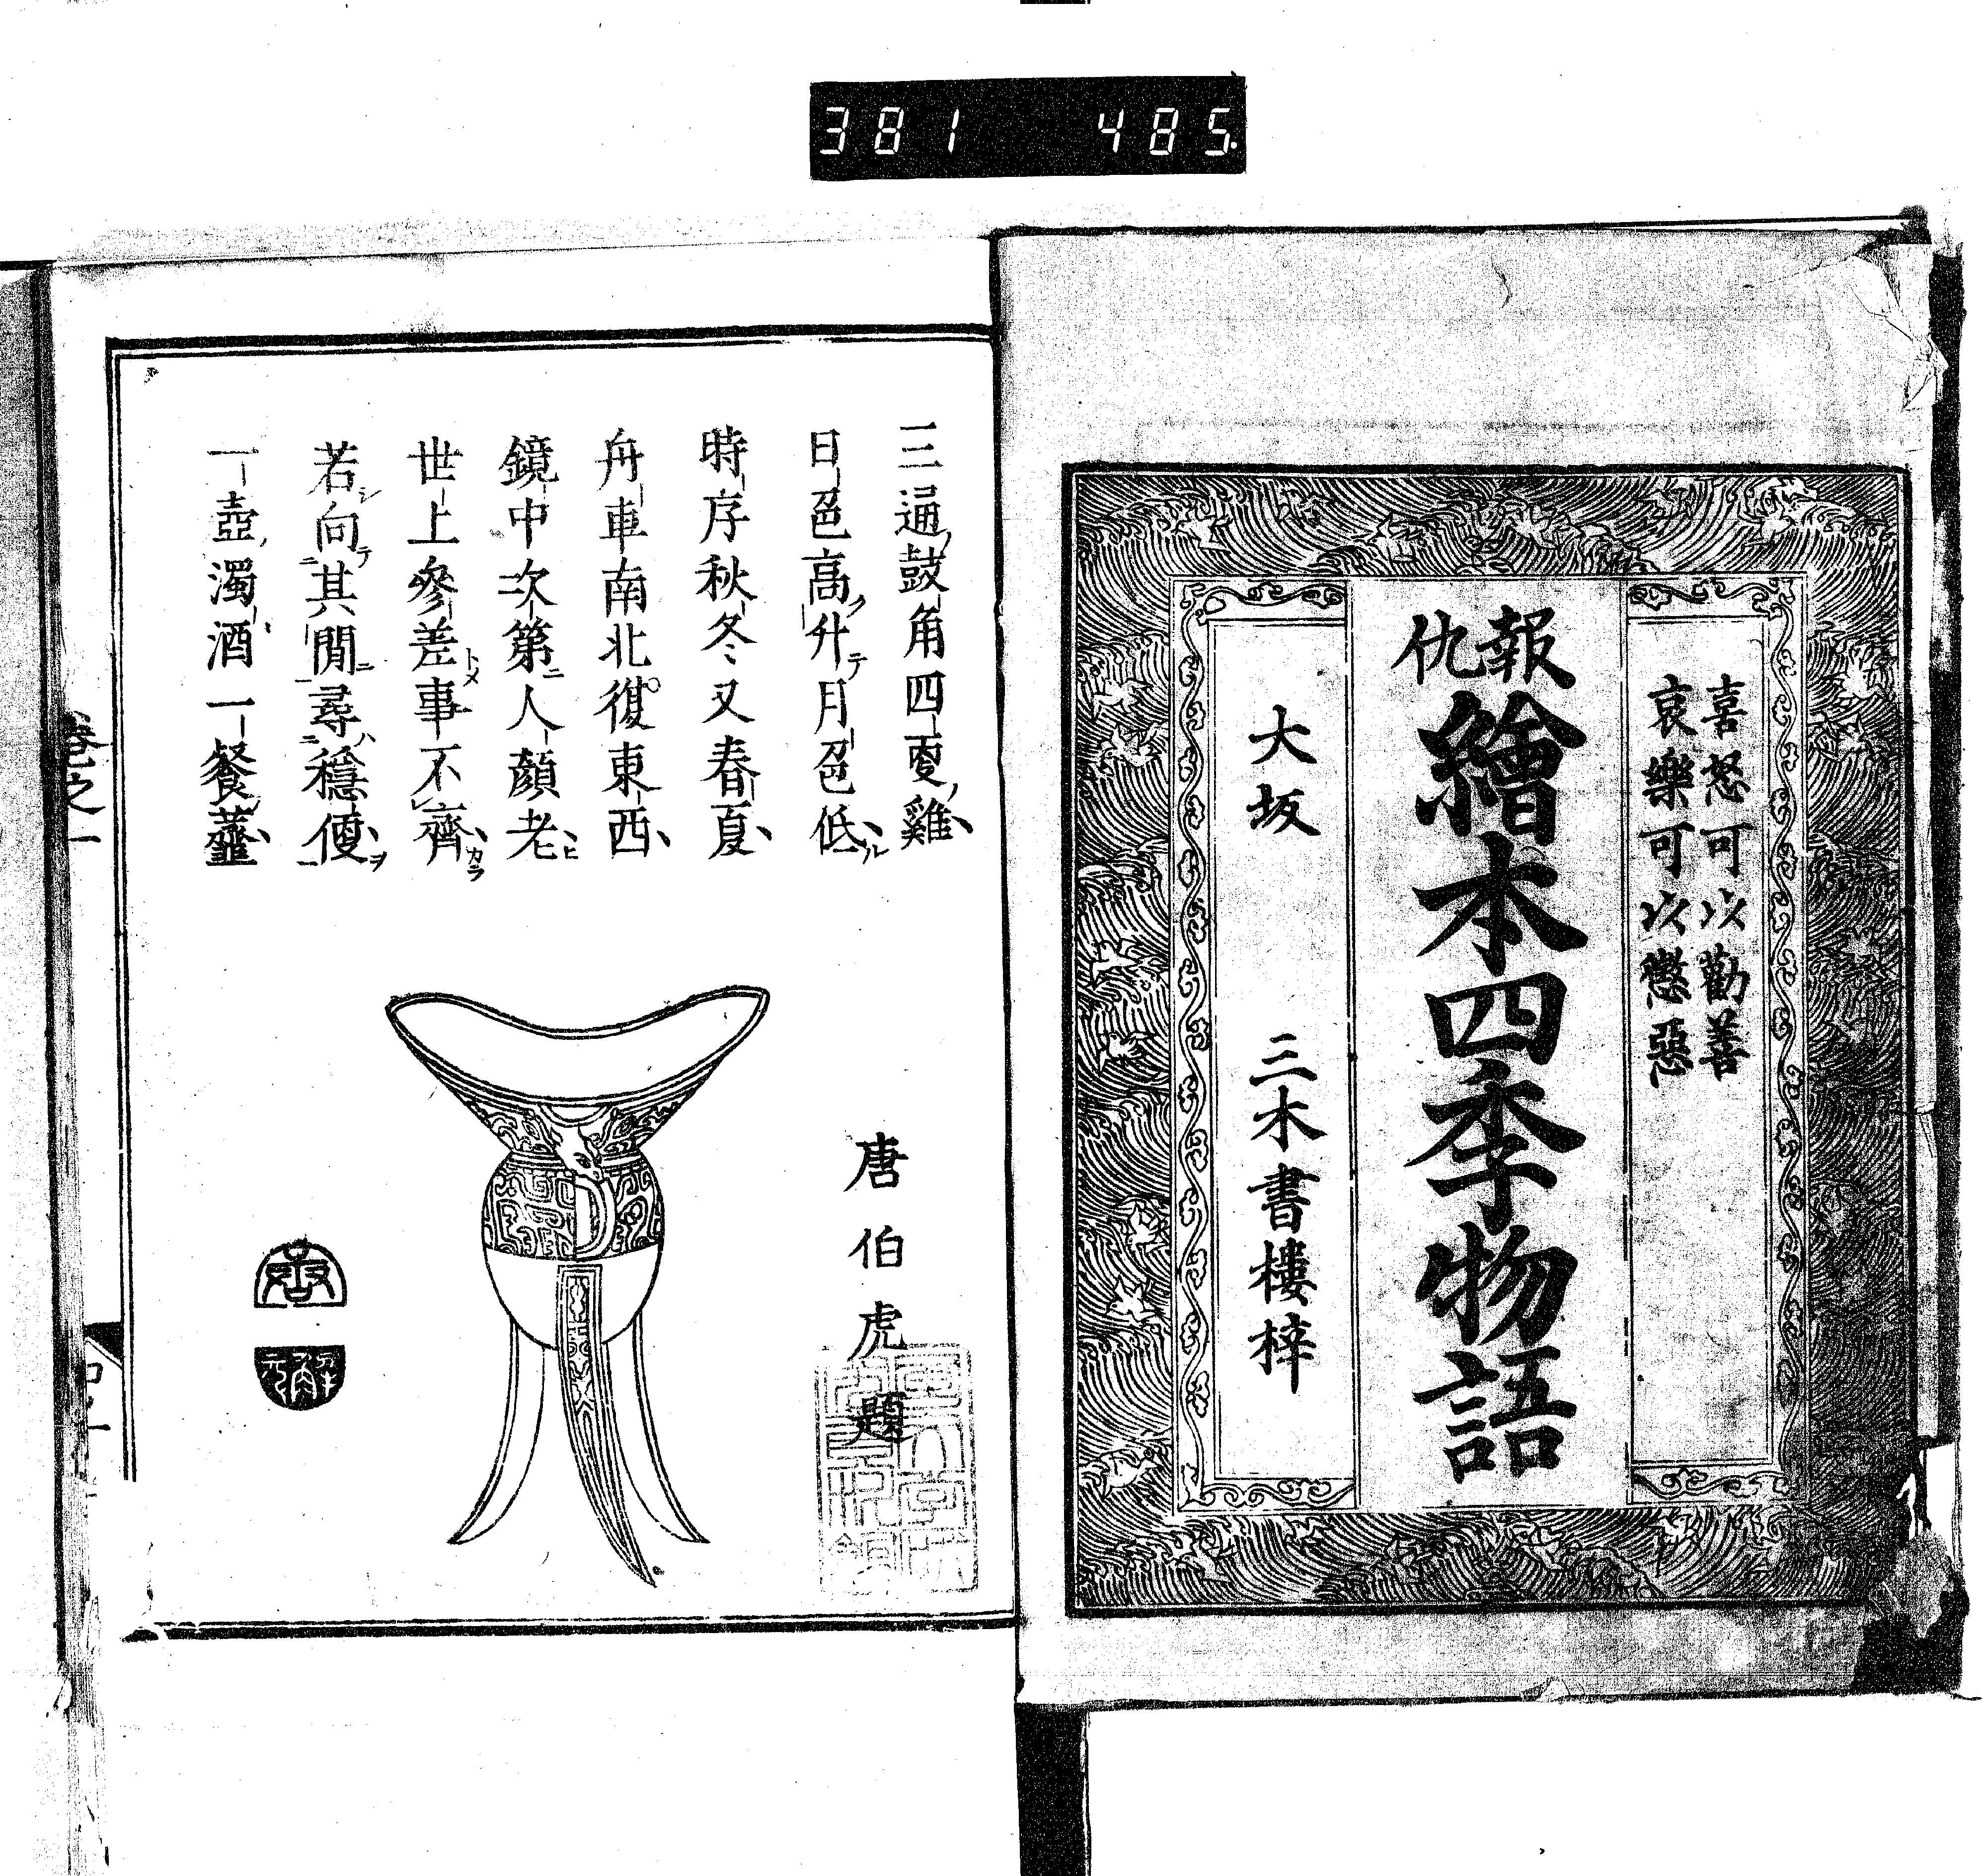 381 485
喜怒可以勸善
哀樂可以懲惡
報仇
繪本四季物語
大坂 三木書樓梓
三通鼓角四更雞
日色高升月色低
時序秋冬又春夏
舟車南北復東西
鏡中次第人顏老
世上參差事不齊
若向其間尋穩便
一壺濁酒一餐虀
唐伯虎題
卷之一